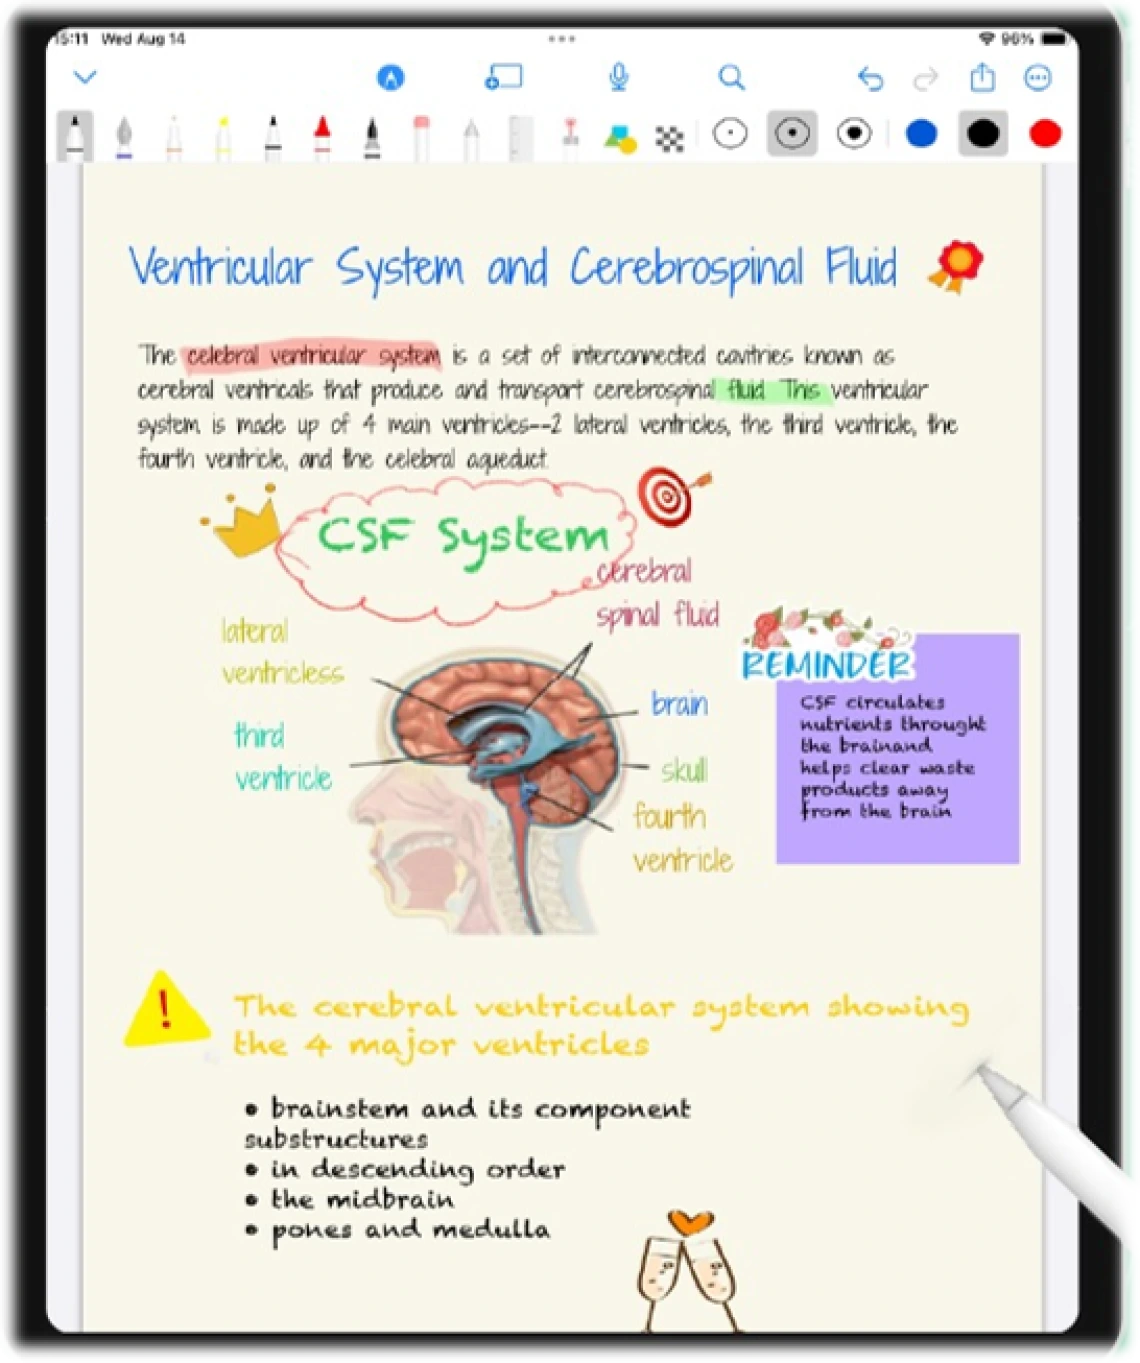 15:11 Wed Aug 14
96%
Ventricular System and Cerebrospinal Fluid
The celebral ventricular system is a set of interconnected cavitries known as
cerebral ventricals that produce and transport cerebrospinal fluid. This ventricular
system is made up of 4 main ventricles--2 lateral ventricles, the third ventricle, the
fourth ventricle, and the celebral aqueduct.
CSF System
cerebral
spinal fluid
lateral
ventricless
third
ventricle
brain
skull
fourth
ventricle
REMINDER
CSF circulates
nutrients throught
the brainand
helps clear waste
products away
from the brain
The cerebral ventricular system showing
the 4 major ventricles
• brainstem and its component
substructures
• in descending order
• the midbrain
• pones and medulla